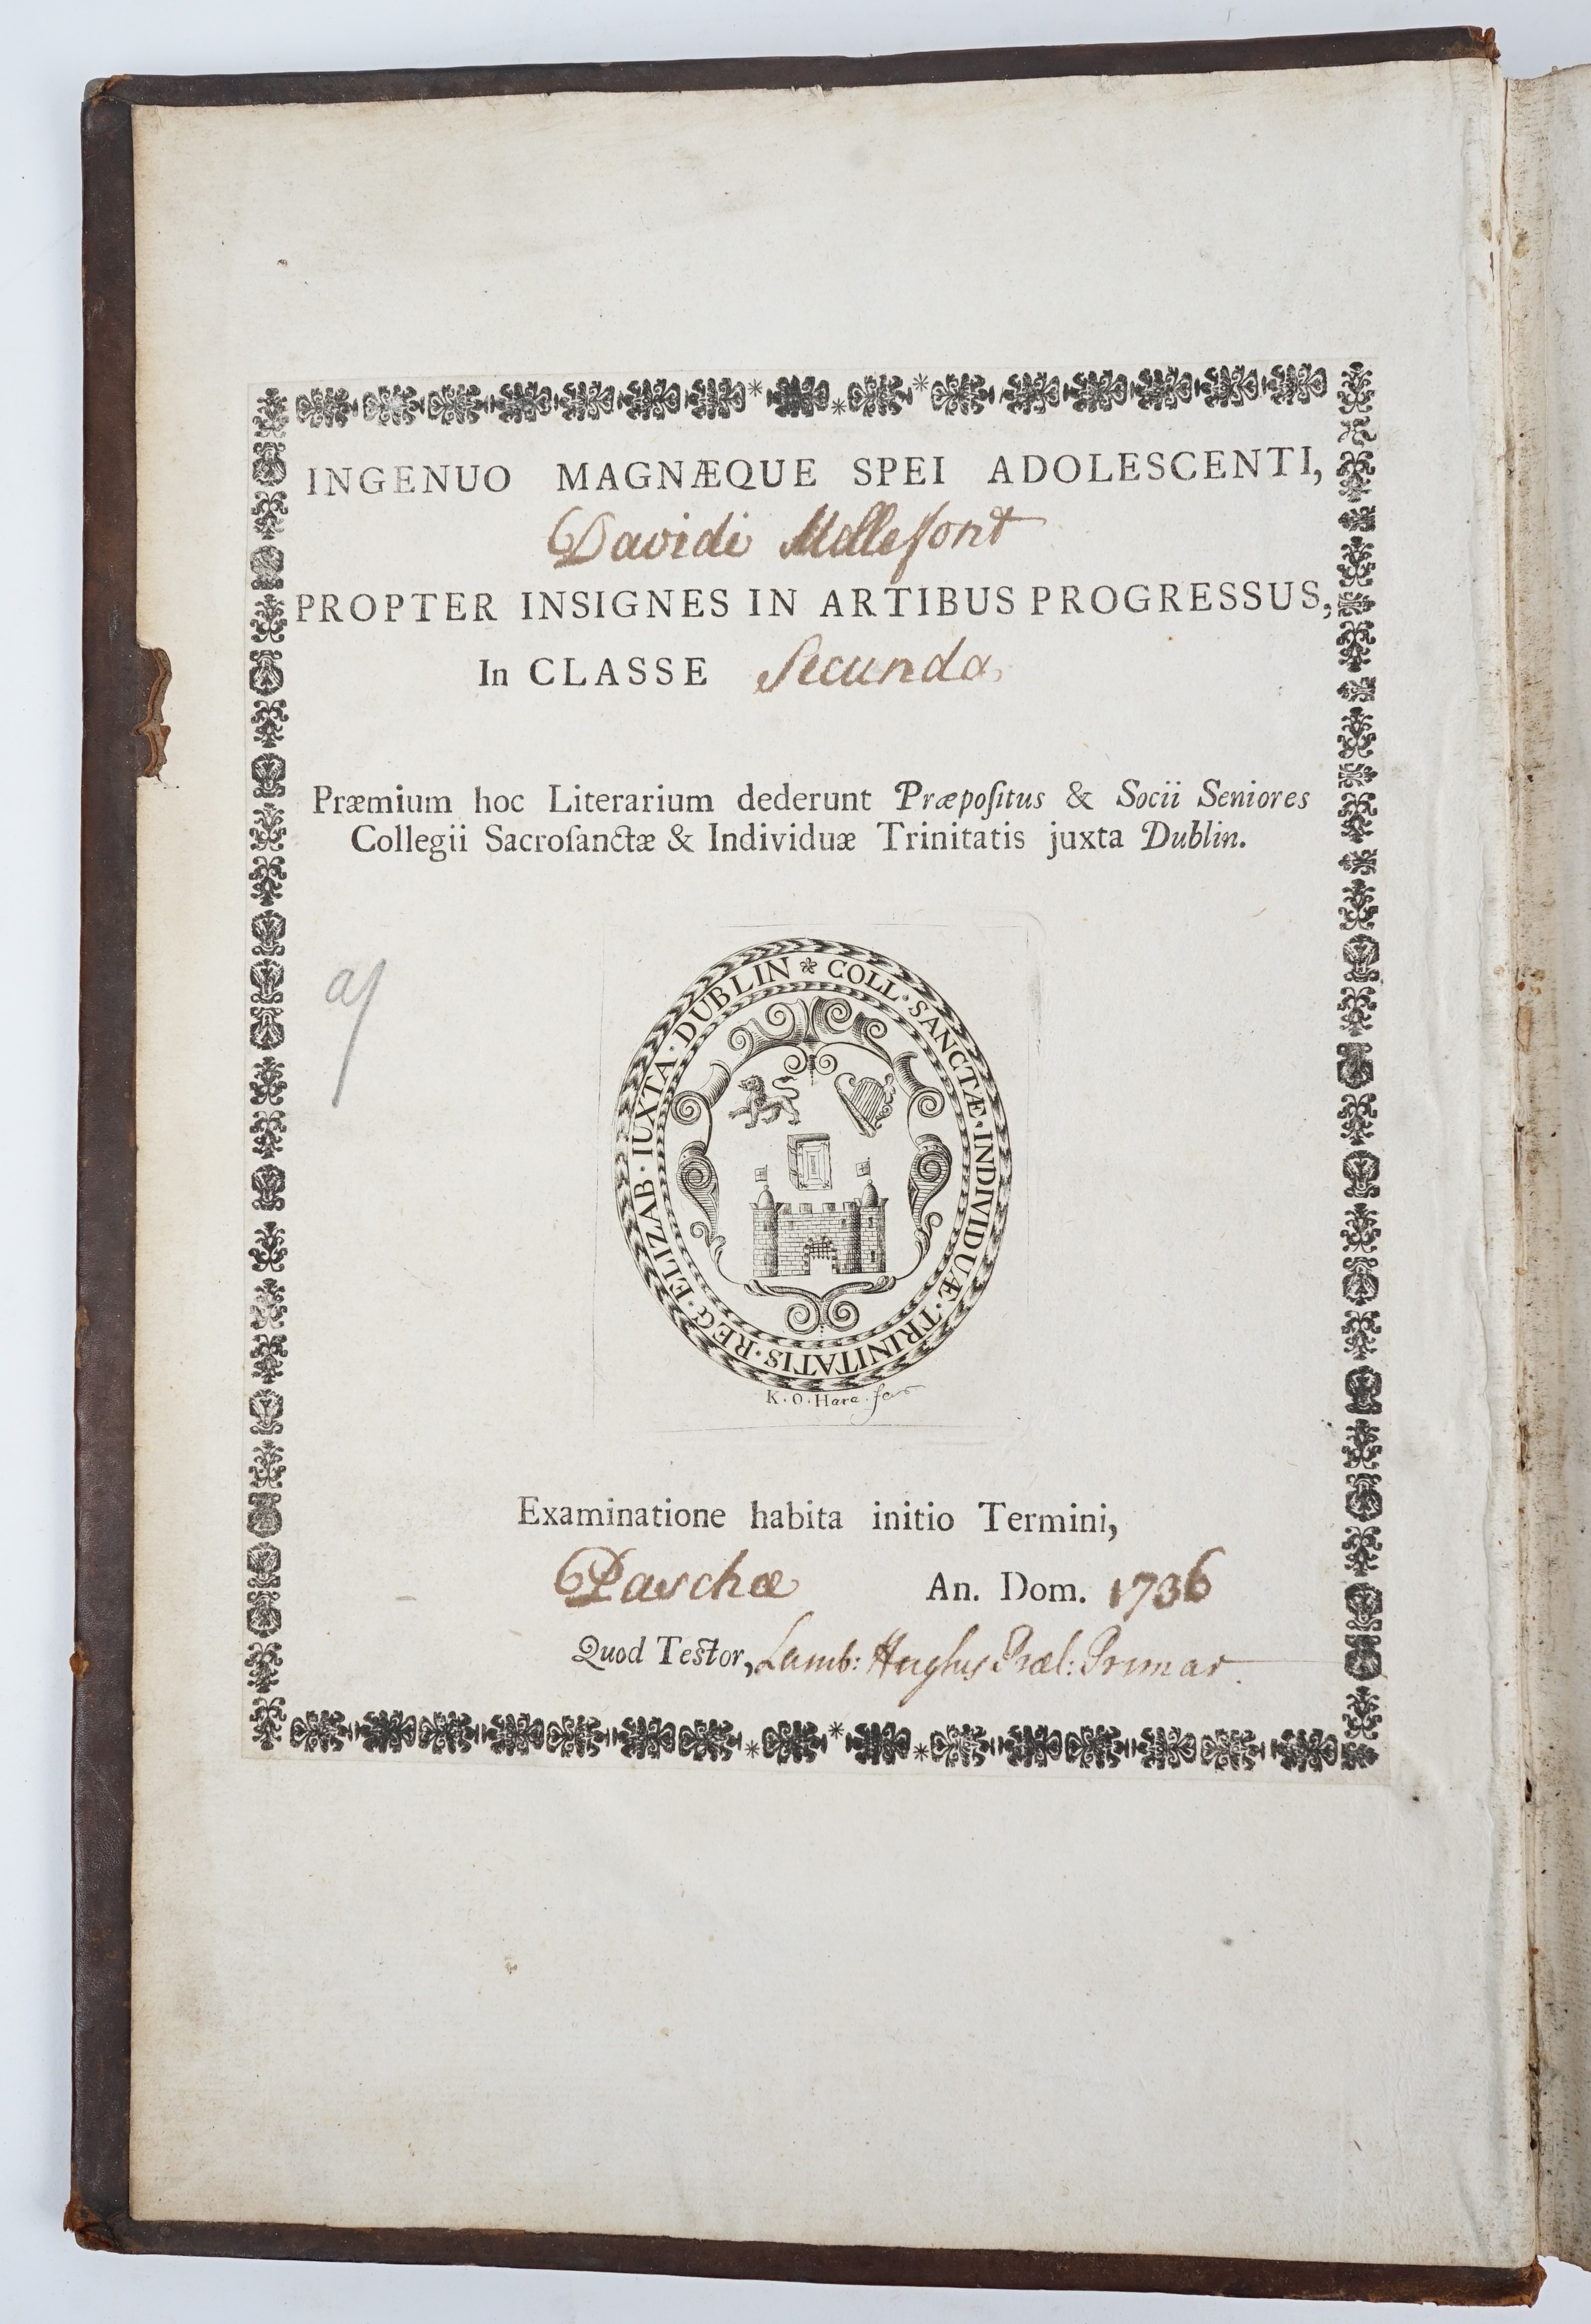 INGENUO MAGNÆQUE SPEI ADOLESCENTI,
Davidi Mellefont
PROPTER INSIGNES IN ARTIBUS PROGRESSUS,
In CLASSE Secunda,
Præmium hoc Literarium dederunt Præpoſitus & Socii Seniores
Collegii Sacroſanctæ & Individuæ Trinitatis juxta Dublin.
COLL · SANCTÆ · INDIVIDUÆ · TRINITATIS · REG · ELIZAB · IUXTA · DUBLIN
K · O · Hara
Examinatione habita initio Termini,
Paschæ An. Dom. 1736
Quod Testor, Lamb: Hughes Præl: Primar.